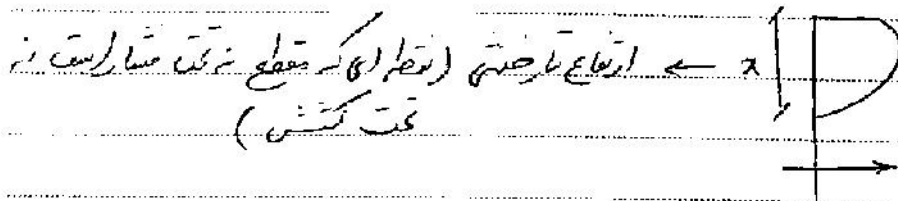 x ← ارتفاع تار خنثی (نقطه ای که مقطع نه تحت فشار است نه
تحت کشش)